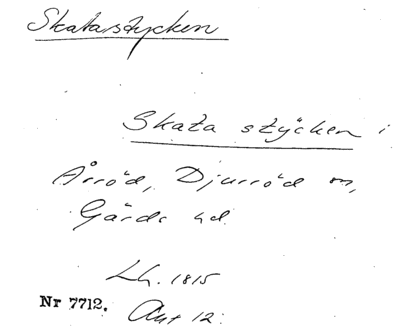 Skatastycken
Skata stÿcken i
Årröd, Djurröd sn,
Gärds hd.
Lh. 1815
Nr 7712. Akt 12.